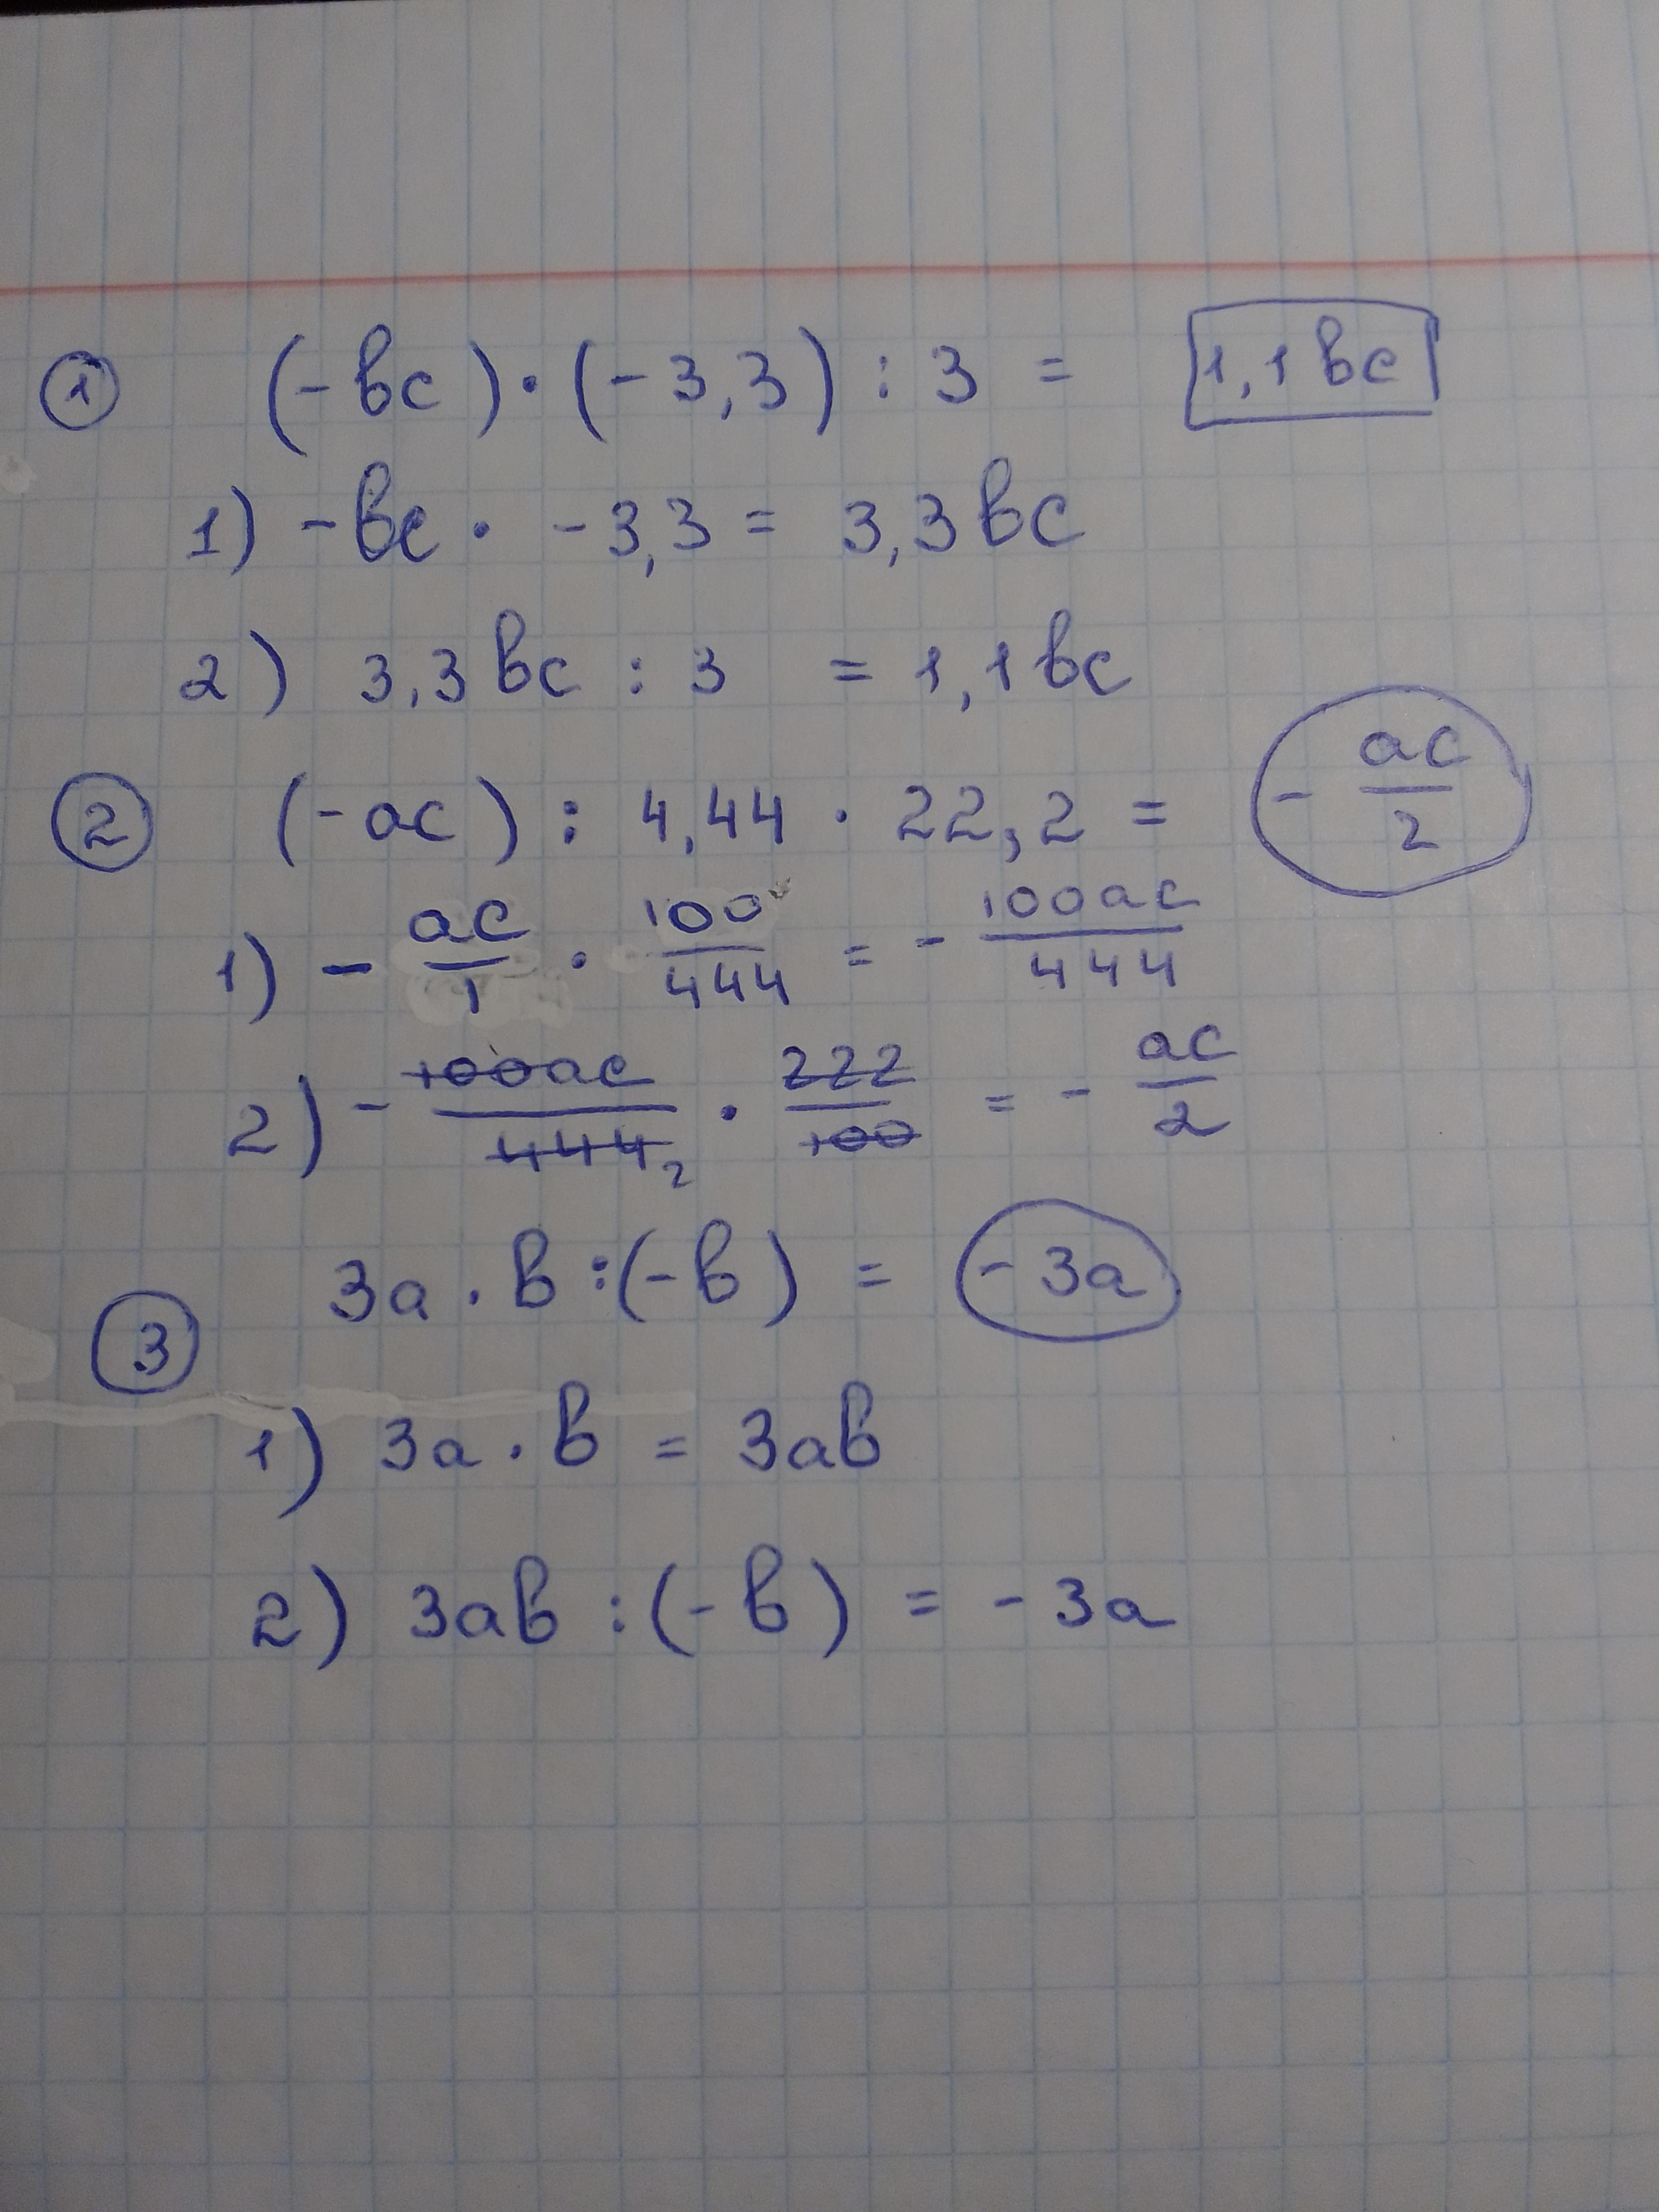 ① (-bc) · (-3,3) : 3 = 1,1bc
1) -bc · -3,3 = 3,3bc
2) 3,3bc : 3 = 1,1bc
② (-ac) : 4,44 · 22,2 = - ac/2
1) - ac/1 · 100/444 = - 100ac/444
2) - 100ac/444 2 · 222/100 = - ac/2
③ 3a · b : (-b) = -3a
1) 3a · b = 3ab
2) 3ab : (-b) = -3a